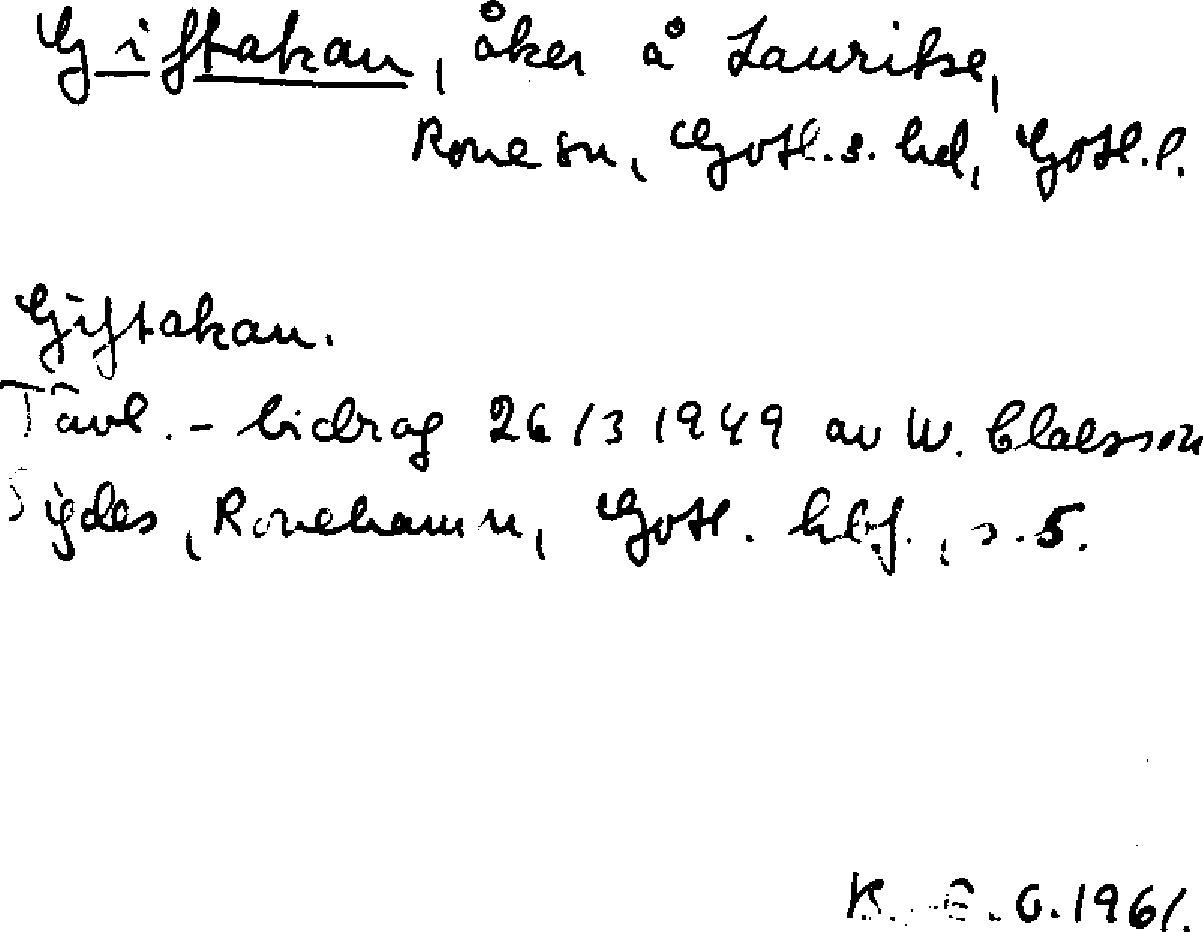 Giftakan, åker å Lauritse,
Rone sn, Gotl. s. hd, Gotl. l.
Giftakan.
Tävl. - bidrag 26/3 1949 av W. Claesson
Sigdes, Ronehamn, Gotl. hbf., s. 5.
K.-E. G. 1961.